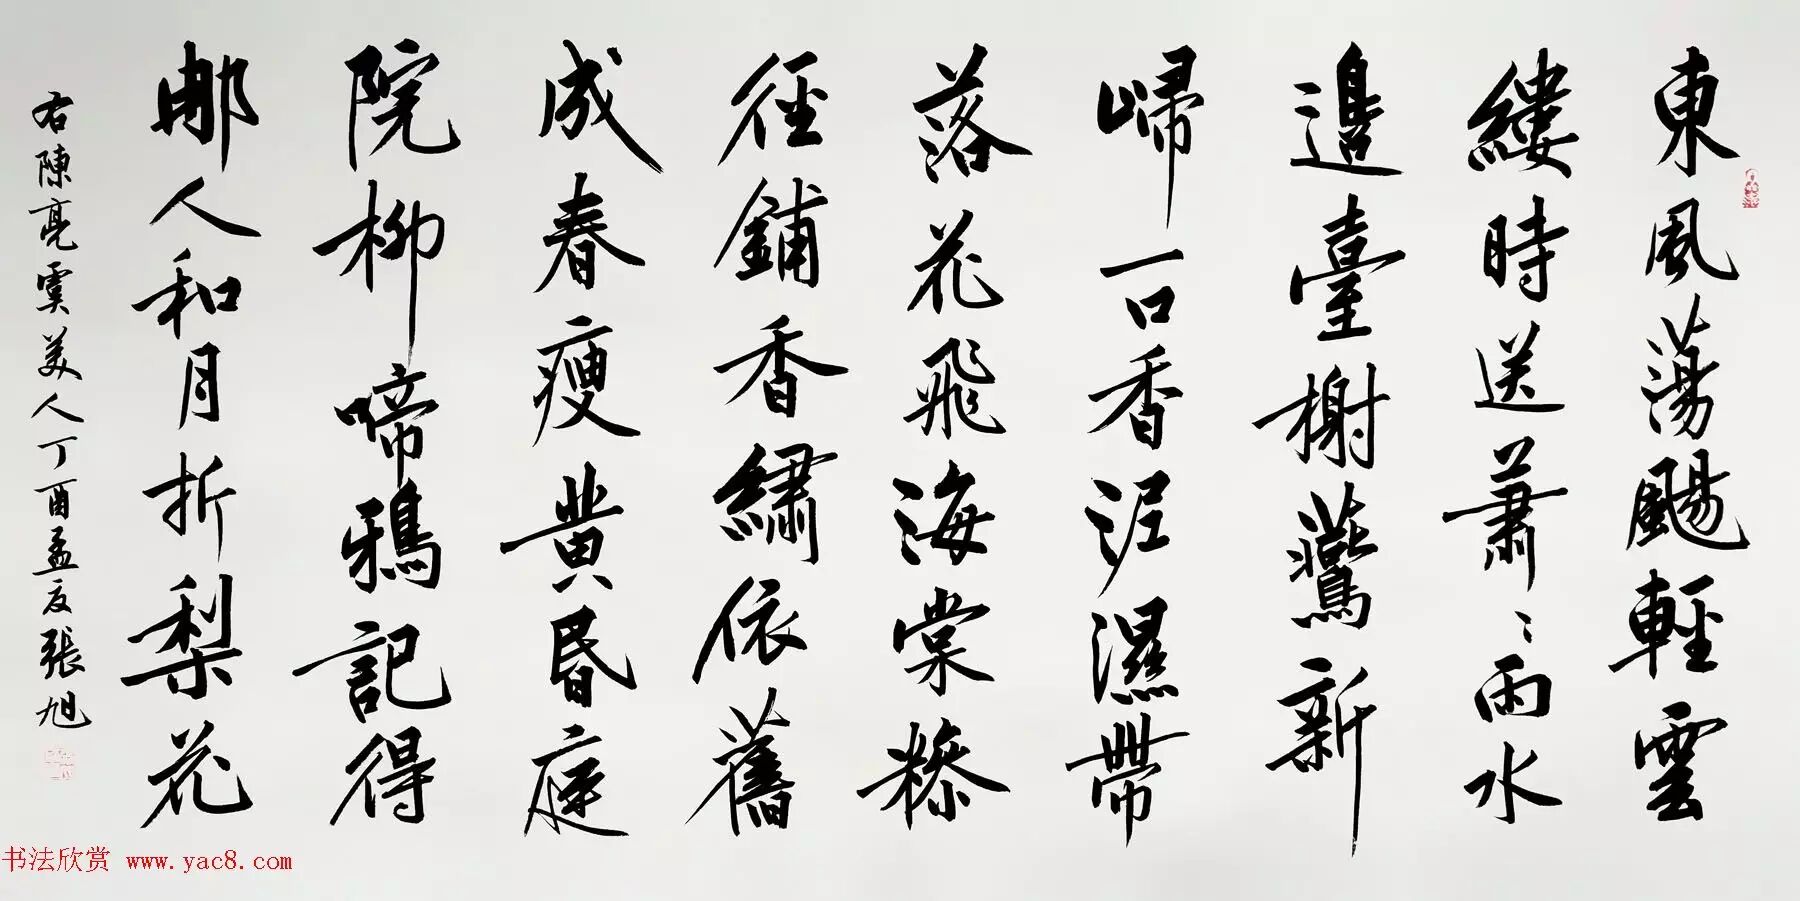 東風蕩颺輕雲
縷時送蕭〻雨水
邊臺榭鷰新
歸一口香泥濕帶
落花飛海棠糝
徑鋪香繡依舊
成春瘦黄昏庭
院柳啼鴉記得
那人和月折梨花
右陳亮虞美人丁酉孟夏張旭
书法欣赏 www.yac8.com